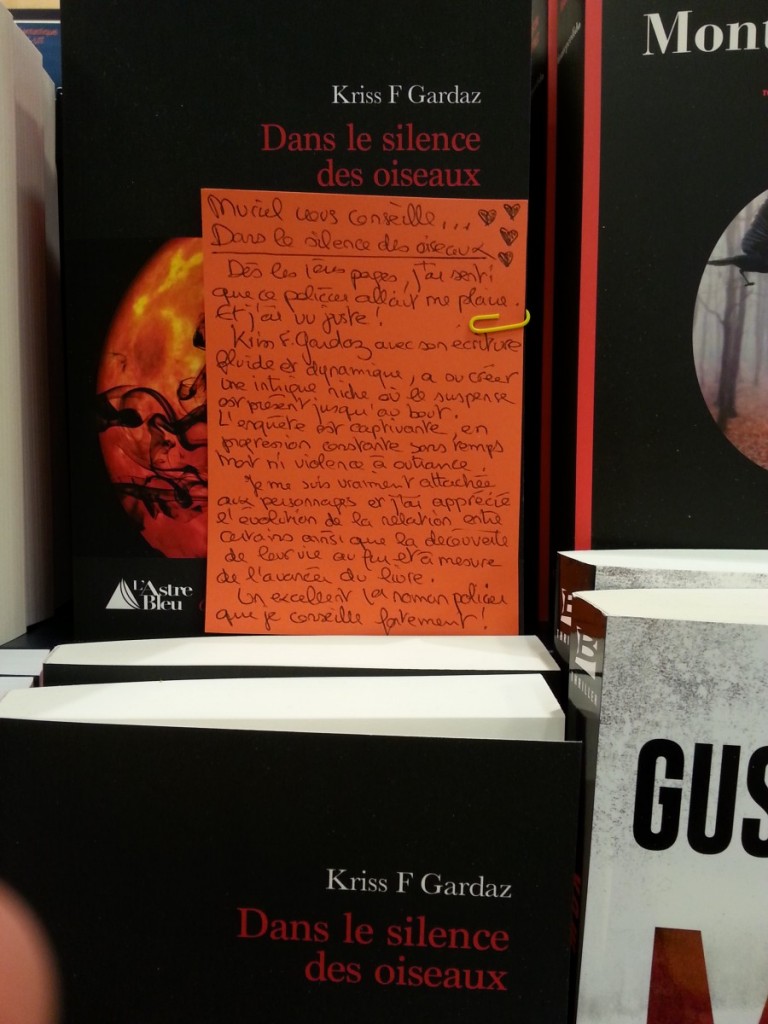 Kriss F Gardaz
Dans le silence
des oiseaux
Muriel vous conseille...
Dans le silence des oiseaux
Dès les 1ères pages, j'ai senti
que ce policier allait me plaire.
Et j'ai vu juste!
Kriss F. Gardaz avec son écriture
fluide et dynamique, a su créer
une intrigue riche où le suspense
est présent jusqu'au bout.
L'enquête est captivante, en
progression constante sans temps
mort ni violence à outrance.
Je me suis vraiment attachée
aux personnages et j'ai apprécié
l'évolution de la relation entre
certains ainsi que la découverte
de leur vie au fur et à mesure
de l'avancée du livre.
Un excellent 1er roman policier
que je conseille fortement!
L'Astre
Bleu
Mont
THRILLER
GUS
M
Kriss F Gardaz
Dans le silence
des oiseaux